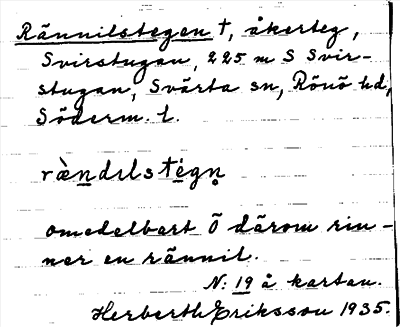 Rännilstegen †, åkerteg,
Svirstugan, 225 m S Svir-
stugan, Svärta sn, Rönö hd,
Söderm. l.
rὲndɩlstégn̥
omedelbart Ö därom rin-
ner en rännil.
N: 19 å kartan.
Herberth Eriksson 1935.